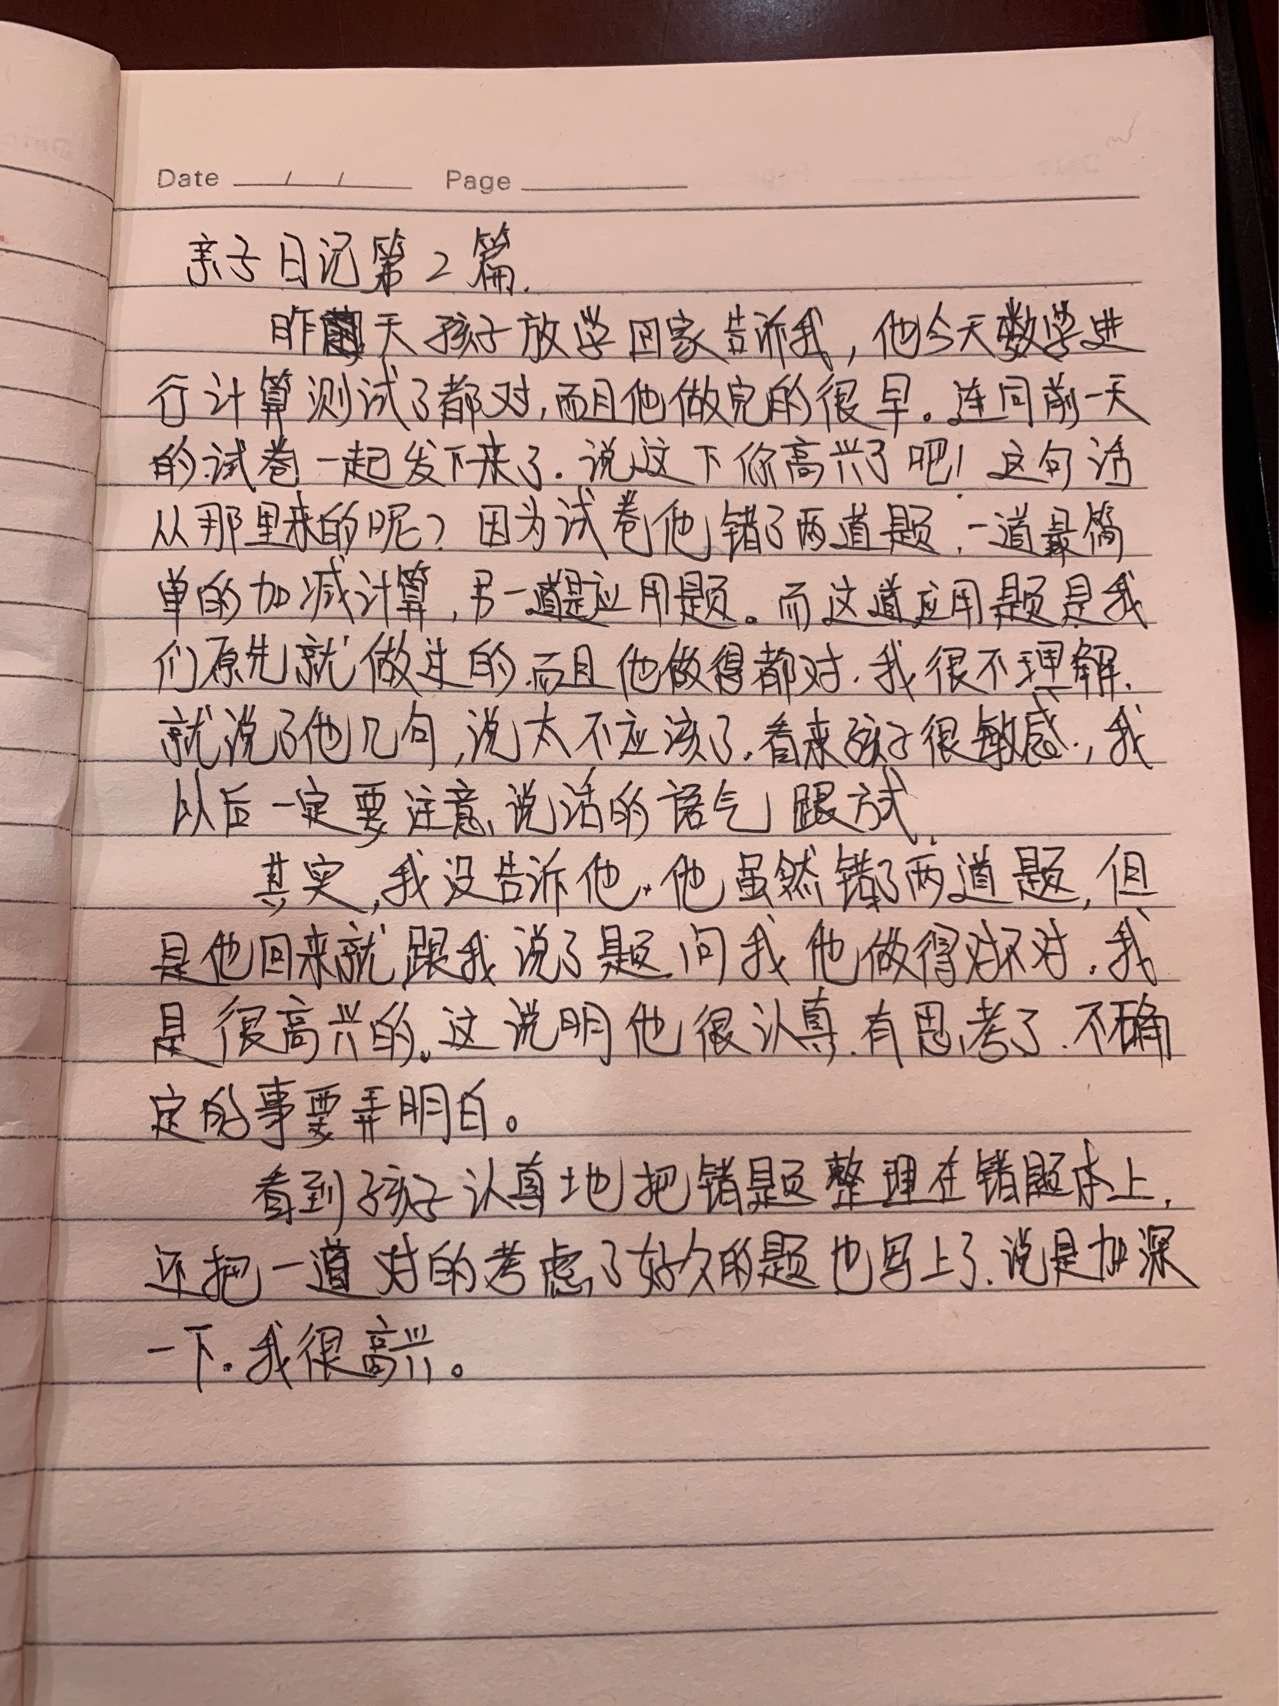 Date / / Page
亲子日记第2篇.
昨天孩子放学回家告诉我，他今天数学进
行计算测试了都对,而且他做完的很早。连同前一天
的试卷一起发下来了.说这下你高兴了吧！这句话
从那里来的呢？因为试卷他错了两道题.一道最简
单的加减计算,另一道是应用题。而这道应用题是我
们原先就做过的.而且他做得都对.我很不理解.
就说了他几句,说太不应该了.看来孩子很敏感,我
以后一定要注意说话的语气跟方式.
其实,我没告诉他.他虽然错了两道题,但
是他回来就跟我说了题.问我他做得对不对.我
是很高兴的。这说明他很认真.有思考了.不确
定的事要弄明白。
看到孩子认真地把错题整理在错题本上,
还把一道对的考虑了好久的题也写上了.说是加深
一下.我很高兴。